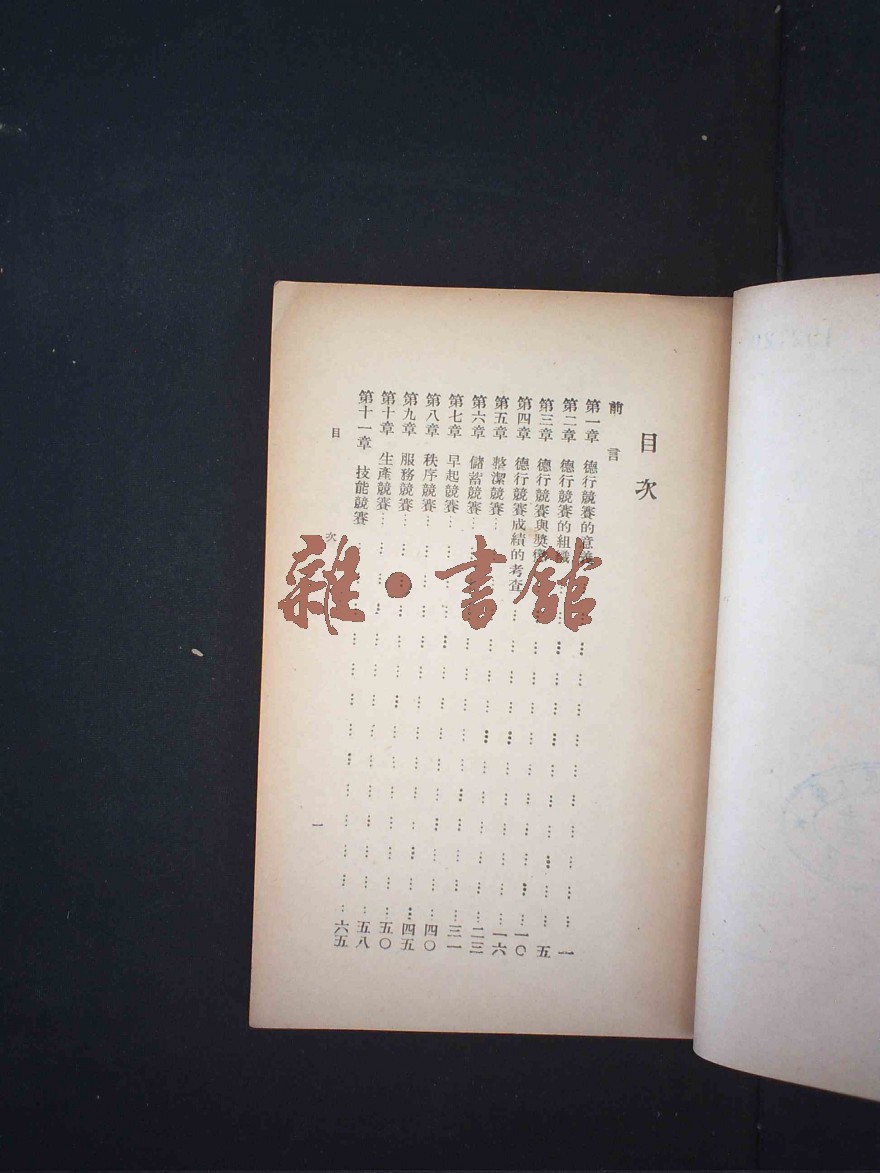 目次
前言
第一章 德行競賽的意義……一
第二章 德行競賽的組織……五
第三章 德行競賽與獎懲……一〇
第四章 德行競賽成績的考查……一六
第五章 整潔競賽……二三
第六章 儲蓄競賽……三一
第七章 早起競賽……四〇
第八章 秩序競賽……四五
第九章 服務競賽……五〇
第十章 生產競賽……五八
第十一章 技能競賽……六五
目次
一
雜·書館